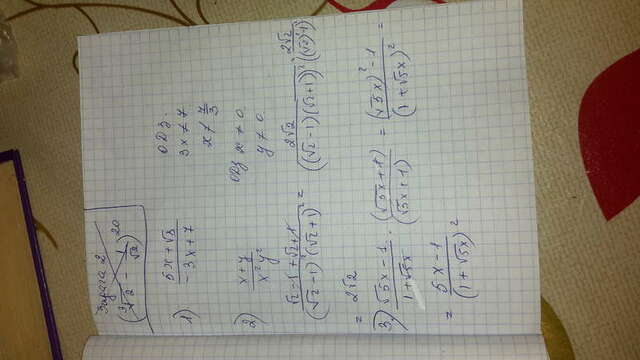 Задача 2
(∛2 − 1/√2)^20
1) (5x+√3)/(−3x+7) ОДЗ.
3x ≠ 7
x ≠ 7/3
2) (x+y)/(x²y²) ОДЗ x ≠ 0
y ≠ 0
(√2−1+√2+1)/((√2−1)²(√2+1)²) = 2√2/((√2−1)(√2+1))² 2√2/((√2)²−1)²
= 2√2
3) (√5x−1)/(1+√5x) · (√5x+1)/(√5x+1) = ((√5x)²−1)/(1+√5x)² =
= (5x−1)/(1+√5x)²